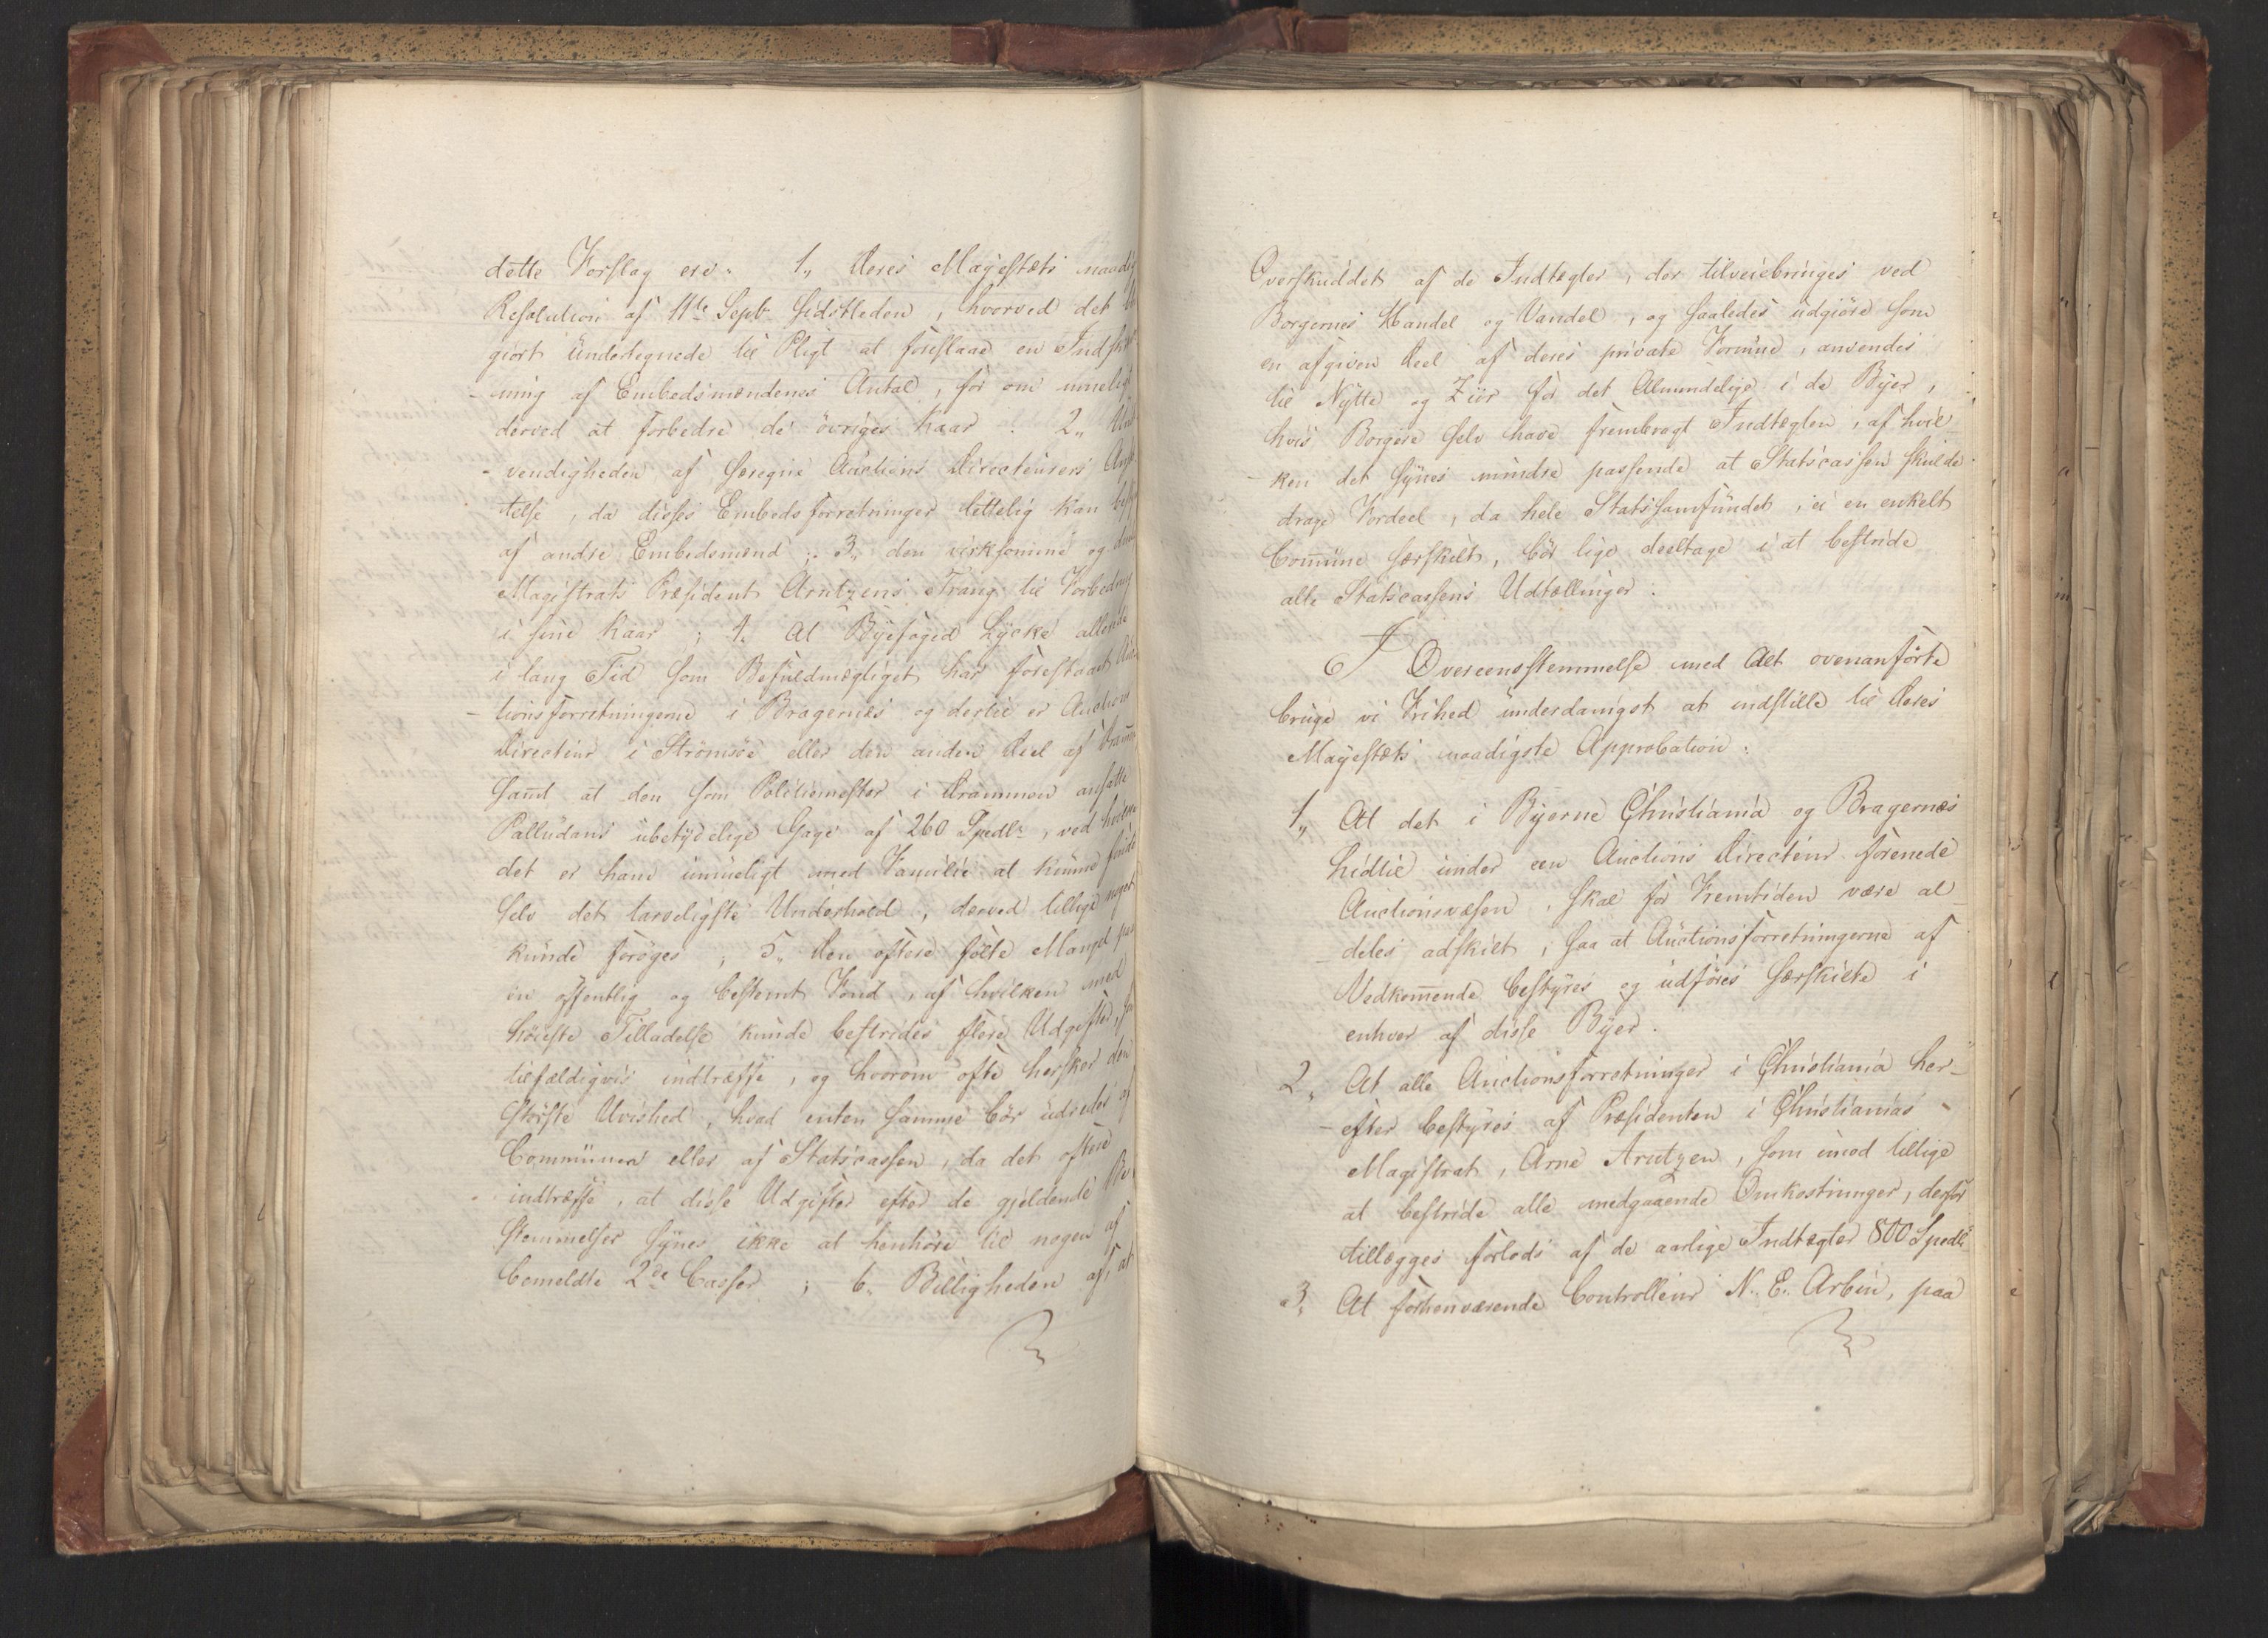 dette Forslag ere: 1, Deres Majestæts naadig
Resolution af 11te Septb sidstleden, hvorved det
giort Undertegnede til Pligt at foreslaae en Indskr
-ning af Embedsmændenes Antal, for om mueligt
derved at forbedre de övriges Kaar. 2,
-vendigheden af særegne Auctions Directeurers
telse, da disses Embedsforretninger lettelig kan
af andre Embedsmænd; 3, den virksomme og
Magistrats Præsident Arntzens Trang til Forbedring
i sine Kaar; 4. At Byefoged Lycke allerede
i lang Tid som Befuldmægtiget har forestaaet Auc
-tionsforretningerne i Bragernæs og dertil er Auctions
Directeur i Strömsöe eller den anden Deel af Dramm
samt at den som Politiemester i Drammen ansatte
Palludans ubetydelige Gage af 260 Spedlr, ved hvilken
det er ham umueligt med Familie at kunne finde
selv det tarveligste Underhold, derved tillige noget
kunde foröges; 5, Den oftere fölte Mangel paa
en offentlig og bestemt Fond, af hvilken med
höieste Tilladelse kunde bestrides flere Udgifter,
tilfældigviis indtræffe, og hvorom ofte hersker den
störste Uvished, hvad enten samme bör udredes af
Communen eller af Statscassen, da det oftere
indtræffe, at disse Udgifter efter de gjeldende Be
stemmelser synes ikke at henhöre til nogen af
bemeldte 2de Casser; 6. Billigheden af, at
Overskuddet af de Indtægter, der tilveiebringes ved
Borgernes Handel og Vandel, og saaledes udgiöre som
en afgiven Deel af deres private Formue, anvendes
til Nytte og Ziir for det Almindelige i de Byer,
hvis Borgere selv have frembragt Indtægten, af hvil
-ken det synes mindre passende at Statscassen skulde
drage Fordeel, da hele Statssamfundet, ei en enkelt
Com̅une særskilt, bör lige deeltage i at bestride
alle Statscassens Udtællinger.
I Overeensstemmelse med Alt ovenanförte
bruge vi Frihed underdanigst at indstille til Deres
Majestæts naadigste Approbation:
1, At det i Byerne Christiania og Bragernæs
hidtil under een Auctions Directeur forenede
Auctionsvæsen, skal for Fremtiden være al
-deles adskilt, saa at Auctionsforretningerne af
Vedkom̅ende bestyres og udföres særskilte i
enhver af disse Byer.
2, At alle Auctionsforretninger i Christiania her-
-efter bestyres af Præsidenten i Christianias
Magistrat, Arne Arntzen, som imod tillige
at bestride alle medgaaende Omkostninger, derfor
tillægges forlods af de aarlige Indtægter 800 Spedlr
3, At forhenværende Controlleur N. E. Arbin, paa